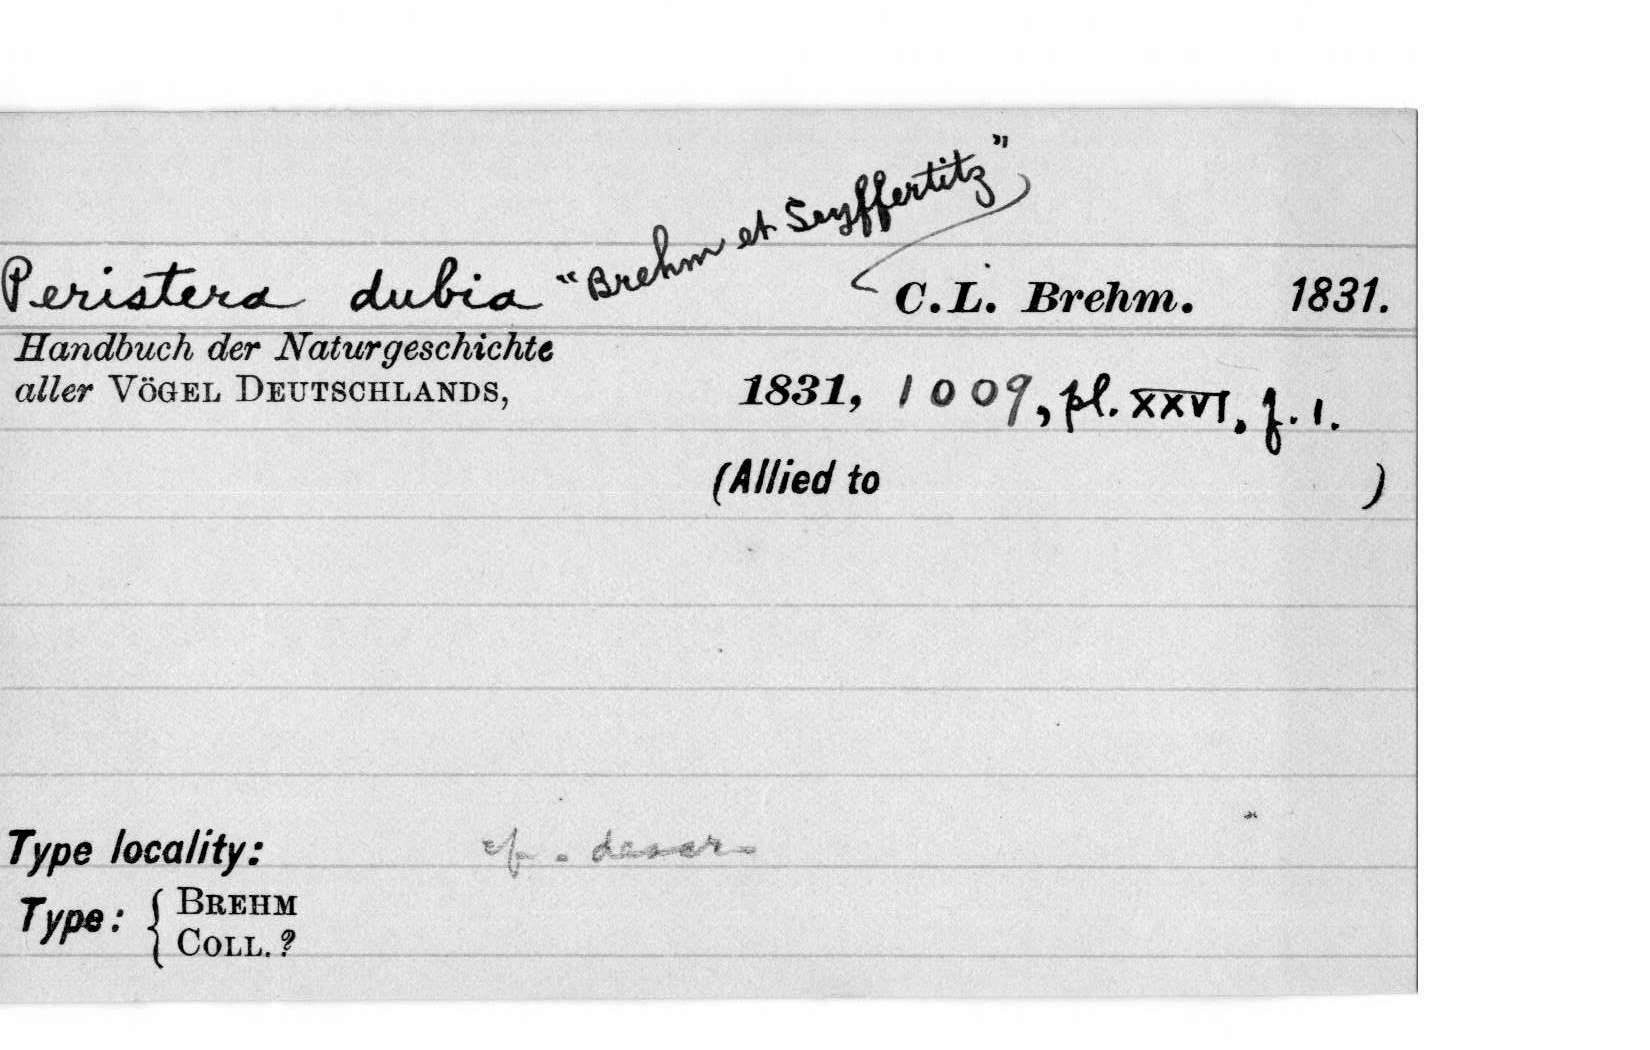 Peristera dubia "Brehm et Seyffertitz" C.L. Brehm. 1831.
Handbuch der Naturgeschichte
aller VÖGEL DEUTSCHLANDS, 1831, 1009, pl. XXVI. f. 1.
(Allied to )
Type locality: cf. descr.
Type: { BREHM
COLL. ?